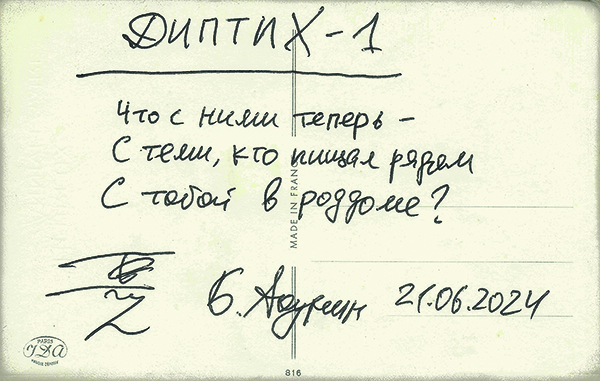 ДИПТИХ-1
Что с ними теперь -
С теми, кто пищал рядом
С тобой в роддоме?
MADE IN FRANCE
21.06.2024
PARIS
816